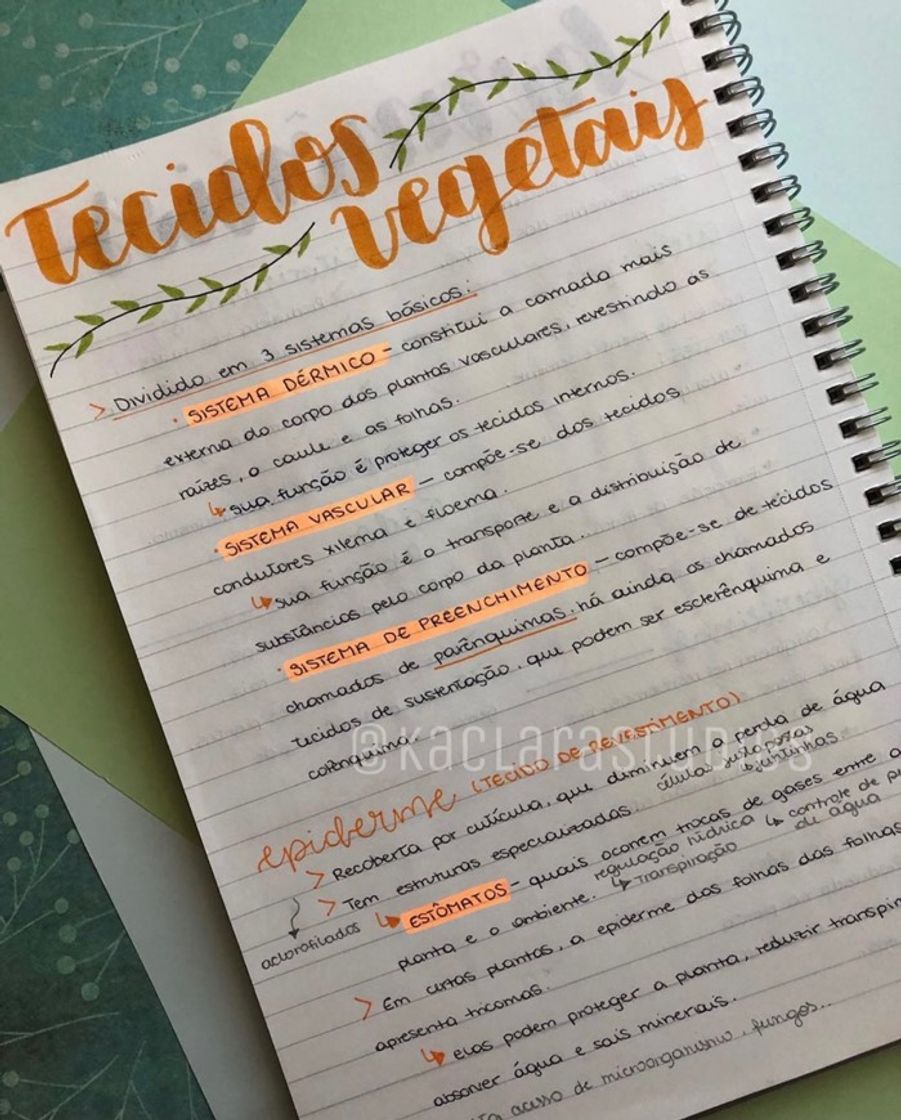 Tecidos
vegetais
> Dividido em 3 sistemas básicos:
· SISTEMA DÉRMICO - constitui a camada mais
externa do corpo das plantas vasculares, revestindo as
raízes, o caule e as folhas.
↳ sua função é proteger os tecidos internos.
· SISTEMA VASCULAR - compõe-se dos tecidos
condutores xilema e floema.
↳ sua função é o transporte e a distribuição de
substâncias pelo corpo da planta.
· SISTEMA DE PREENCHIMENTO - compõe-se de tecidos
chamados de parênquimas. há ainda os chamados
tecidos de sustentação, que podem ser esclerênquima e
colênquima.
@KACLARASTUDIES
epiderme (TECIDO DE REVESTIMENTO)
> Recoberta por cutícula, que diminuem a perda de água
células justapostas
juntinhas.
> Tem estruturas especializadas.
aclorofilados
↳ ESTÔMATOS - quais ocorrem trocas de gases entre a
planta e o ambiente. regulação hídrica ↳ controle de
de água
↳ Transpiração
> Em certas plantas, a epiderme das folhas das folhas
apresenta tricomas.
↳ elas podem proteger a planta, reduzir transpir
absorver água e sais minerais.
acesso de microorganismo, fungos...